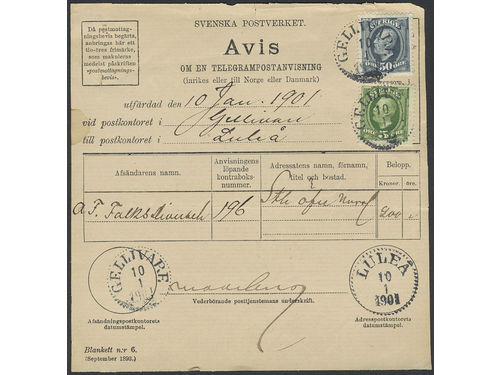 SVENSKA POSTVERKET.
Avis
OM EN TELEGRAMPOSTANVISNING
(inrikes eller till Norge eller Danmark)
Då postmottag-
ningsbevis begärts,
anbringas här ett
tio-öres frimärke,
som makuleras
medelst påskriften
»postmottagnings-
bevis».
SVERIGE
50 ÖRE 50
GELLIVARE
10
5 ÖRE 5
GELLIVARE
10
utfärdad den 10 Jan. 1901
vid postkontoret i Gellivare
till postkontoret i Luleå
Afsändarens namn.
Anvisningens
löpande
kontraboks-
nummer.
Adressatens namn, förnamn,
titel och bostad.
Belopp.
Kronor. öre.
196
200
GELLIVARE
10
1
1901
LULEÅ
10
1
1901
Vederbörande posttjenstemans underskrift.
Afsändningspostkontorets
datumstämpel.
Adresspostkontorets
datumstämpel.
Blankett n:r 6.
(September 1893.)